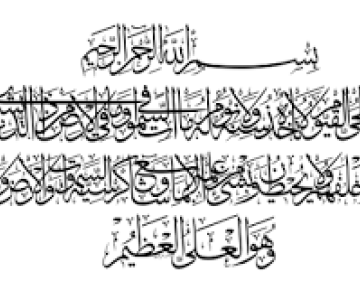 بسم الله الرحمن الرحيم
القيوم لا تأخذه سنة ولا نوم له ما في السموت وما في الأرض من ذا الذي
خلفهم ولا يحيطون بشيء من علمه إلا بما شاء وسع كرسيه السموت والأرض
وهو العلي العظيم